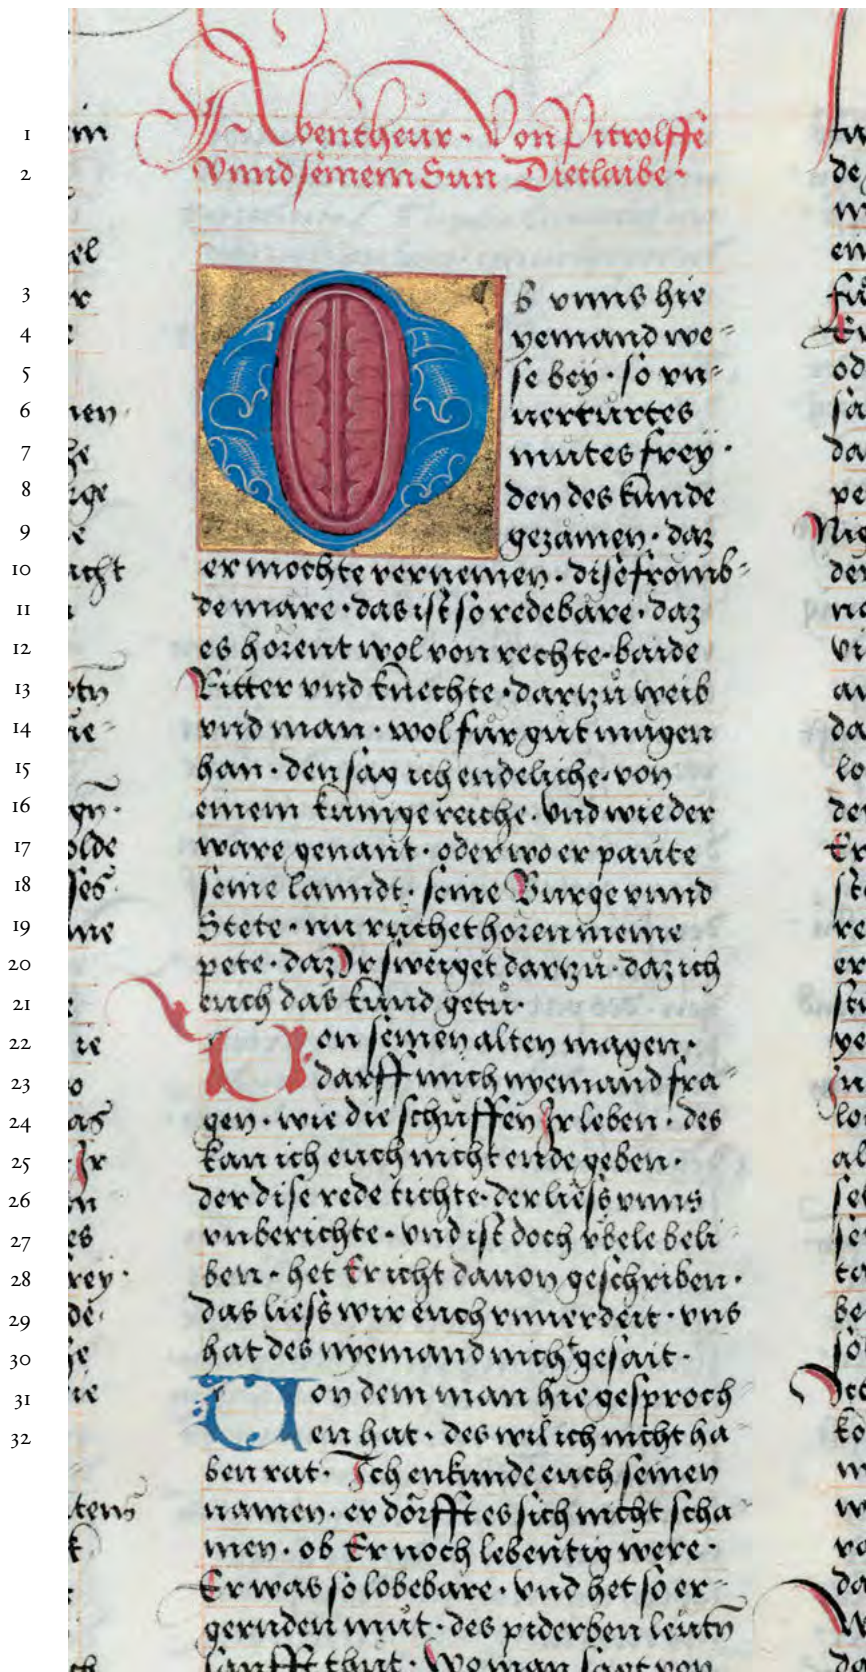 Abentheur · Von Pitrolffe
vnnd seinem Sun Dietlaibe ·
OB vnns hie
yemand we=
se bey · so vn=
uerkurtes
mutes frey ·
den des kunde
gezämen · daz
er mochte vernemen · dise frömb=
de märe · das ist so redebäre · daz
es hörent wol von rechte · baide
Ritter vnd knechte · dartzu weib
vnd man · wol für gut mugen
han · den sag ich endeliche · von
einem kunige reiche · vnd wie der
ware genant · oder wo er paute
seine lanndt · seine Burge vnnd
Stete · nu ruchet hören meine
pete · daz Ir sweiget dartzu · daz ich
euch das kund getu ·
Von seinen alten magen ·
darff mich nyemand fra=
gen · wie die schuffen Ir leben · des
kan ich euch nicht ende geben ·
der dise rede tichte · der liess vnns
vnberichte · vnd ist doch vbele beli=
ben · het Er icht dauon geschriben ·
das liess wir euch vnuerdeit · vns
hat des nyemand nicht gesait ·
Von dem man hie gesproch=
en hat · des wil ich nicht ha=
ben rat · Ich enkunde euch seinen
namen · er dörfft es sich nicht scha=
men · ob Er noch lebentig were ·
Er was so lobebare · vnd het so er=
gernden mut · des piderben leuten
sanfft thut · Wo man sagt von